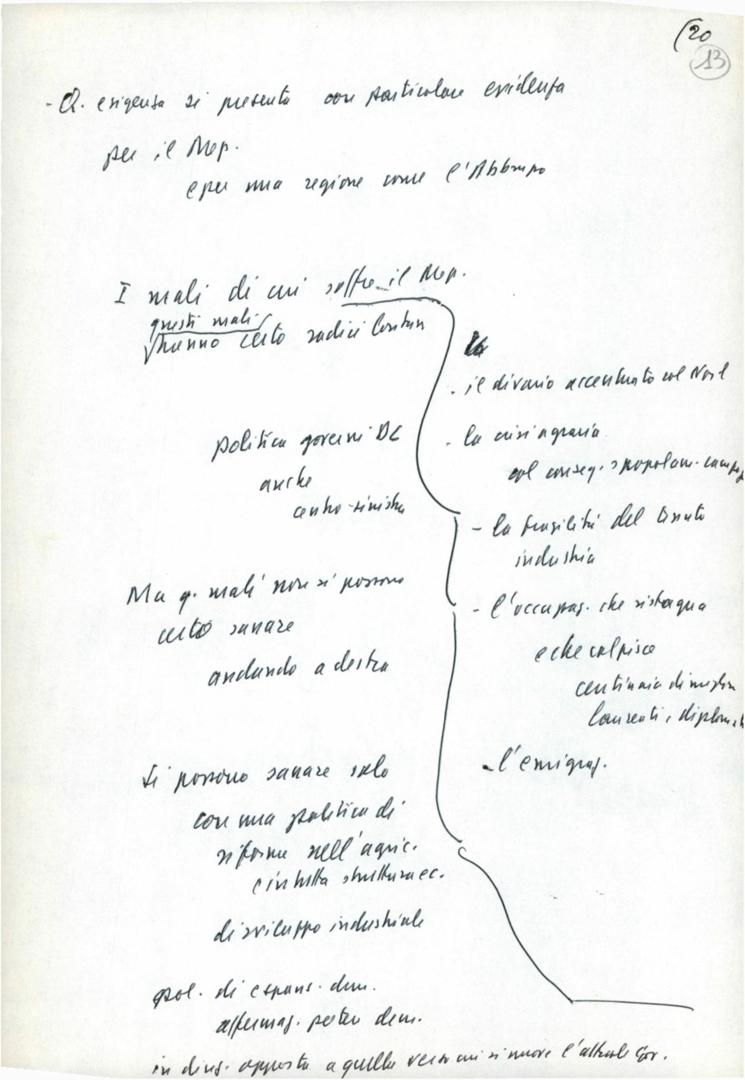 (20
13
- Q. esigenza si presenta con particolare evidenza
per il Mep.
e per una regione come l'Abbruzzo
I mali di cui soffre il Mep.
questi mali
hanno certo radici lontan
politica governi DC
anche
centro-sinistra
Ma q. mali non si possono
certo sanare
andando a destra
Si possono sanare solo
con una politica di
riforme nell'agric.
e in tutta struttura ec.
di sviluppo industriale
pol. di espans. dem.
affermaz. poter dem.
in direz. opposta a quella verso cui si muove l'attuale Gov.
- il divario accentuato col Nord
- la crisi agraria
col conseg. spopolam. campag
- la fragilità del tessuto
industria
- l'occupaz. che ristagna
e che colpisce
centinaia di migliaia
laureati, diplomati
- l'emigraz.